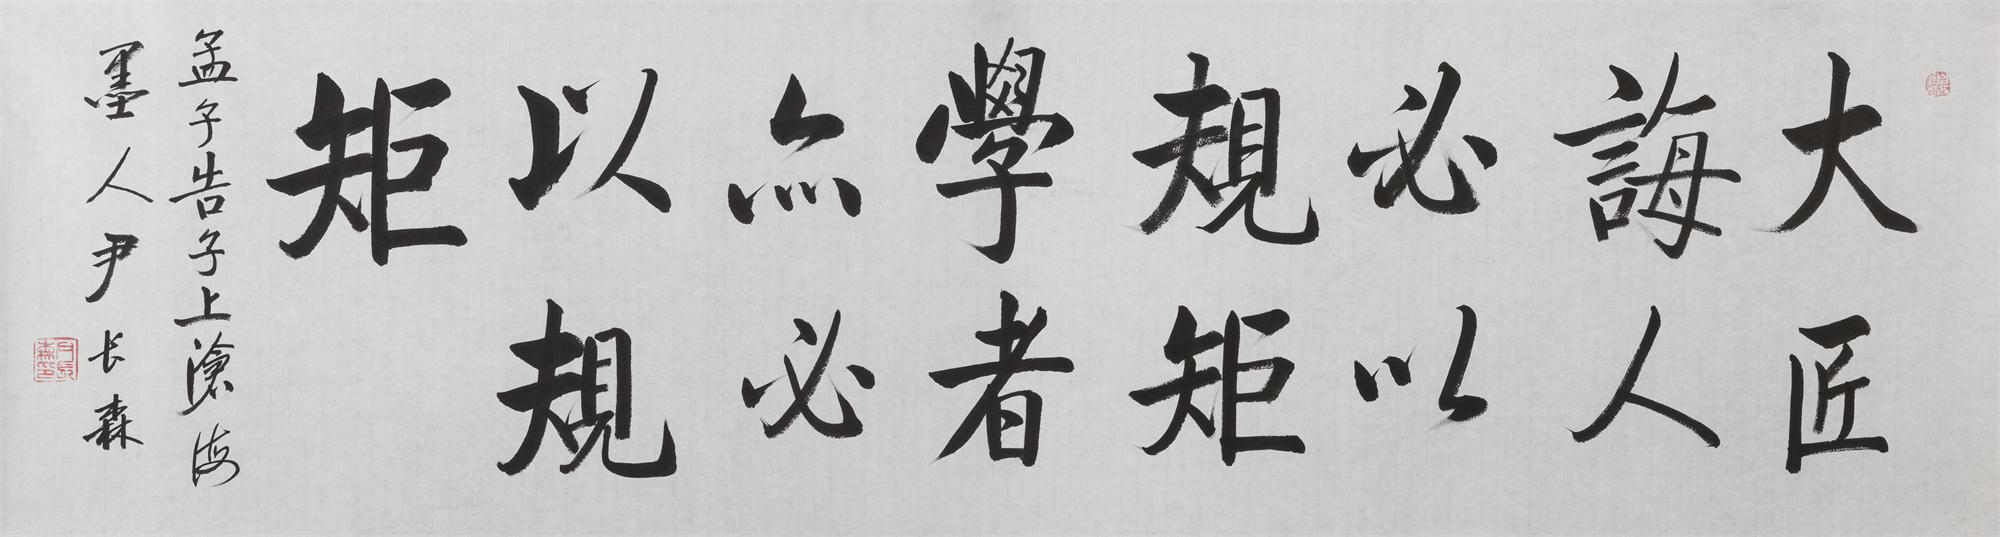 大匠
誨人
必以
規矩
學者
亦必
以規
矩
孟子告子上滄海
墨人尹长森